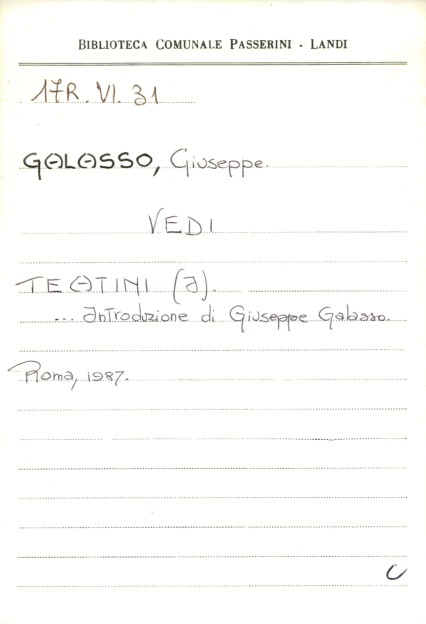 BIBLIOTECA COMUNALE PASSERINI - LANDI
17R. VI. 31
GALASSO, Giuseppe.
VEDI
TEATINI (I).
... Introduzione di Giuseppe Galasso.
Roma, 1987.
C